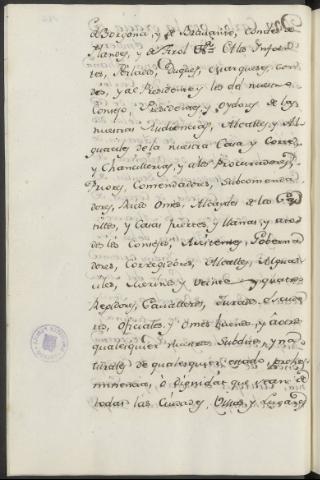 de Borgoña, y de Brabante, Condes de
Flandes, y de Tirol &c.ª A los Infan-
tes, Perlados, Duques, Marqueses, Con-
des, y al Presidente y los del nuestro
Consejo, Presidentes, y Oydores de las
nuestras Audiencias, Alcaldes, y Al-
guaciles de la nuestra Casa y Corte,
y Chancillerias, y a los Procuradores,
Priores, Comendadores, Subcomenda
dores, Ricos Omes, Alcaydes de los Cas
tillos, y Casas fuertes y llanas, y a to
dos los Consejos, Asistentes, Goberna
dores, Corregidores, Alcaldes, Algua
ciles, Merinos y Veinte y quatro
Regidores, Cavalleros, Jurados, Escude
ros, Oficiales, y Omes buenos, y a otros
qualesquier nuestros Subditos, y na
turales de qualesquier estado, prehe
minencia, ò dignidad que sean de
todas las Ciudades, Villas, y Lugares